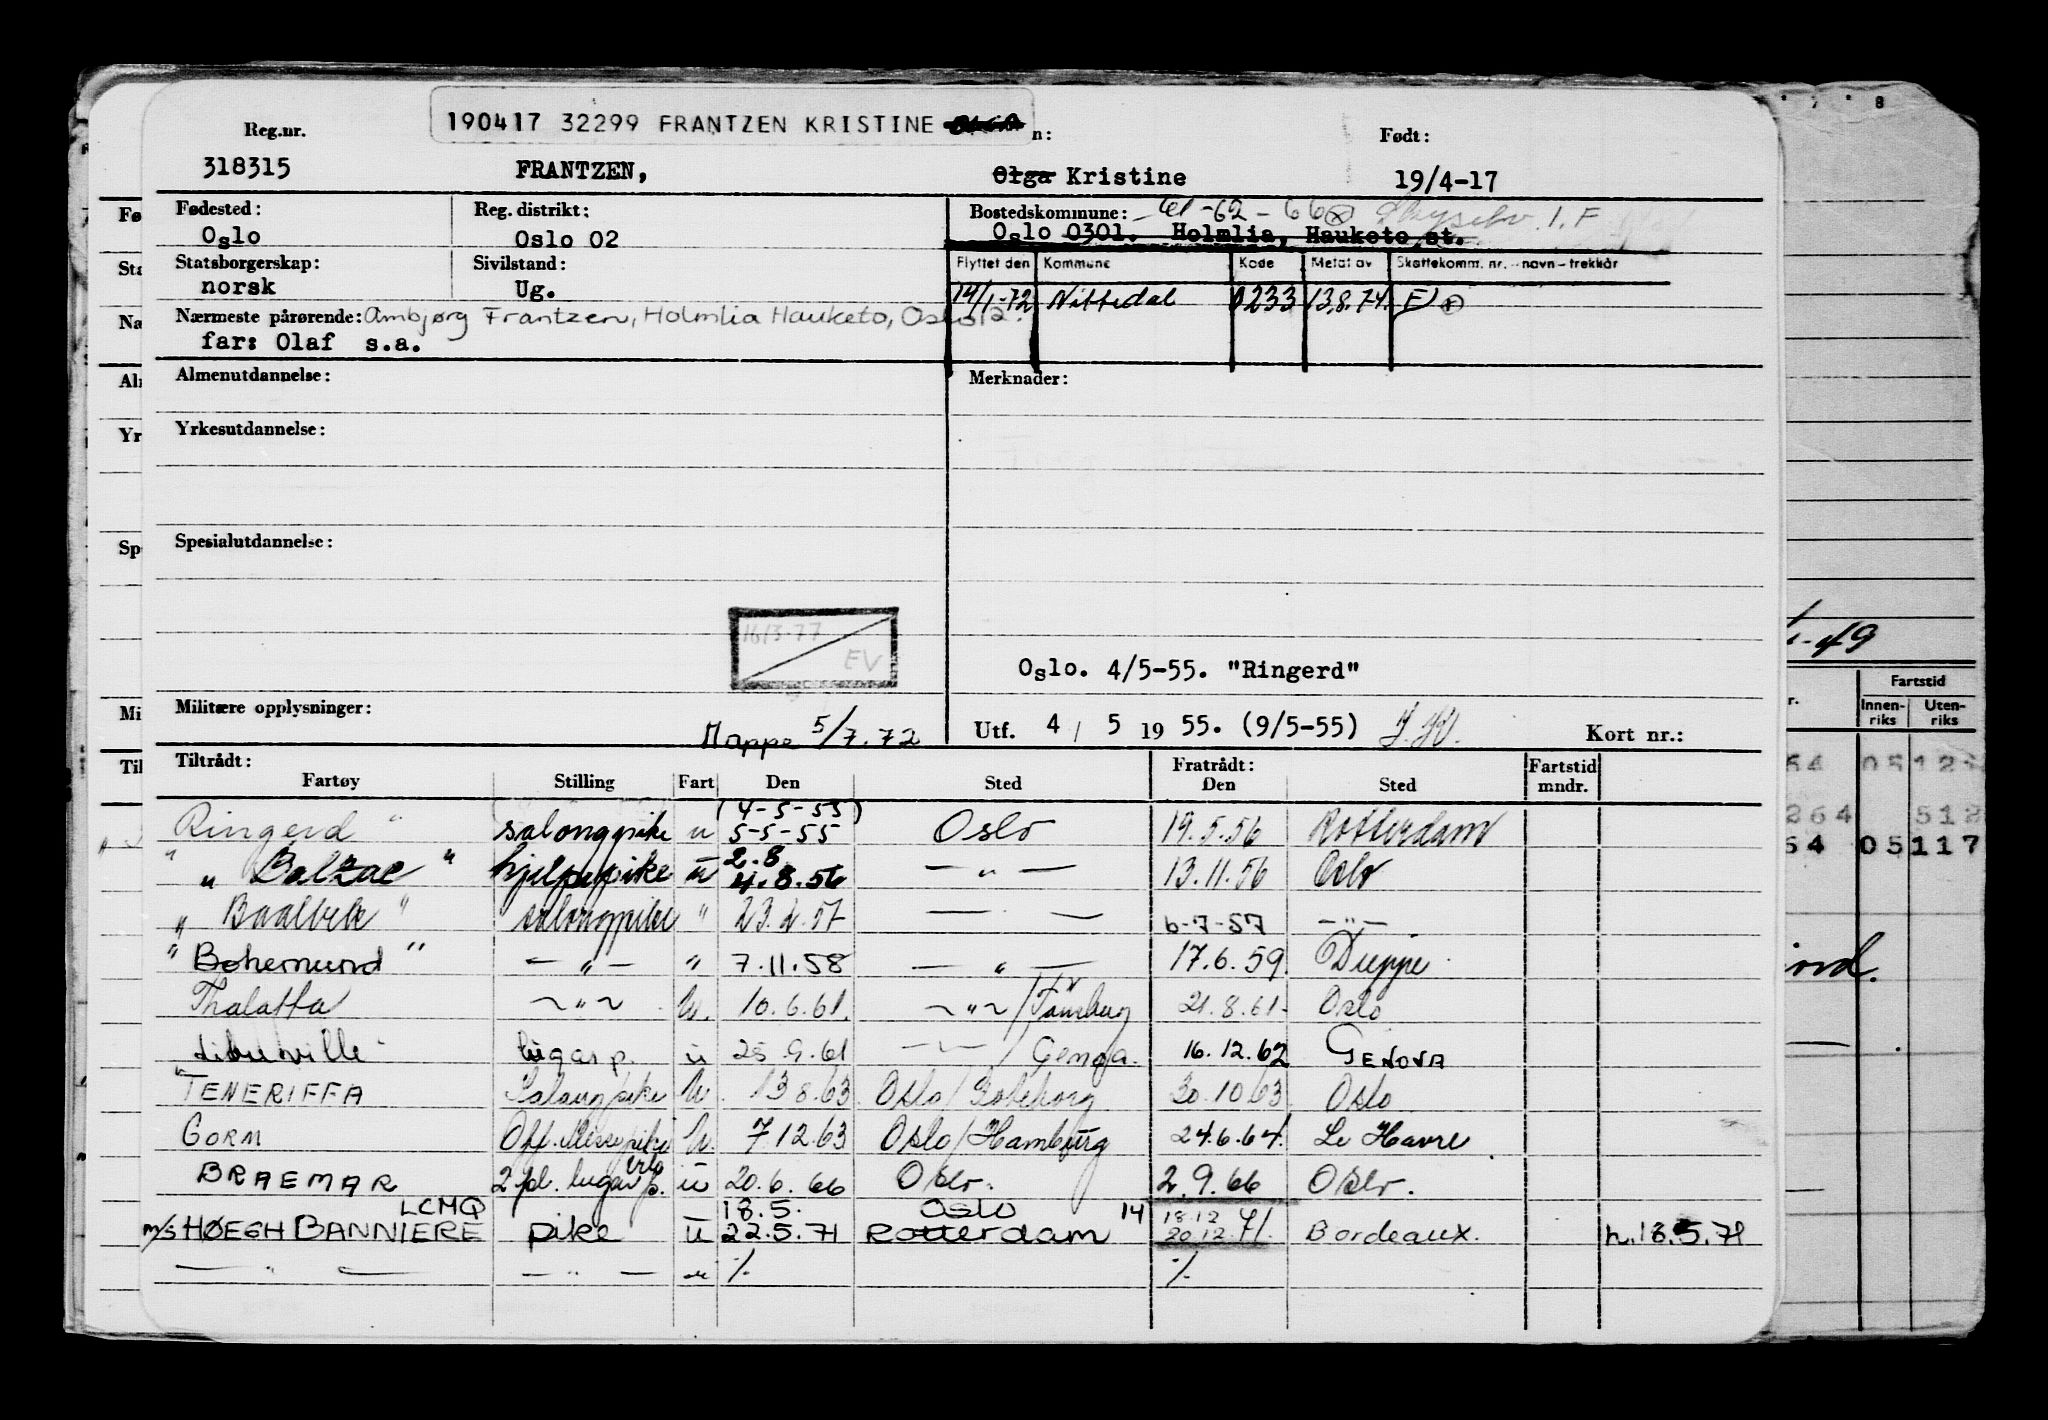 190417 32299 FRANTZEN KRISTINE
Reg.nr. n: Født:
318315 FRANTZEN, Olga Kristine 19/4-17
Fødested: Reg. distrikt: Bostedskommune: -61-62-66
Oslo Oslo 02 Oslo 0301. Holmlia, Hauketo st.
Statsborgerskap: Sivilstand: Flyttet den Kommune Kode Metat av Skattekomm. nr. - navn - trekkår
norsk Ug. 14/1-72 Nittedal 0233 13.8.74.
Nærmeste pårørende: Ambjørg Frantzen, Holmlia Hauketo, Oslo
far: Olaf s.a.
Almenutdannelse: Merknader:
Yrkesutdannelse:
Spesialutdannelse:
16/3-77
EV
Oslo. 4/5-55. "Ringerd"
Militære opplysninger: Mappe 5/7.72 Utf. 4 / 5 19 55. (9/5-55) Kort nr.:
Tiltrådt: Fratrådt: Fartstid
Fartøy Stilling Fart Den Sted Den Sted mndr.
(4-5-55)
Ringerd " salongpike u 5-5-55 Oslo 19.5.56 Rotterdam
2.8
" Balzac " hjelpepike u 4.8.56 — " — 13.11.56 Oslo
" Baalbek " salongpike " 23.2.57 — — 6-7-57 — " —
" Bohemund " — " — " 7.11.58 — " — 17.6.59 Dieppe
Thalatta — " — u. 10.6.61. — " — / Tønsberg 21.8.61. Oslo
Libreville lugarp. u 25.9.61 — " — / Genoa. 16.12.62 GENOVA
"TENERIFFA Salongpike u 13 8.63 Oslo/Gøteborg 30.10 63 Oslo
GORM Off. Messepike u. 7 12.63 Oslo/Hamburg 24.6.64. Le Havre
BRAEMAR 2 pl. lugarp. u 20.6.66 Oslo. 2.9.66 Oslo.
LCMQ 18.5. Oslo 14 18.12
m/s HØEGH BANNIERE pike u 22.5.71 Rotterdam 20.12.71. Bordeaux. h.18.5.71
— " — — " — u ./. ./.
Fø
Sta
Na
Alı
Yr
Sp
Mi
Til
7 8
-49
Fartstid
r. Innen-riks Uten-riks
64 05 12
264 512
64 05 117